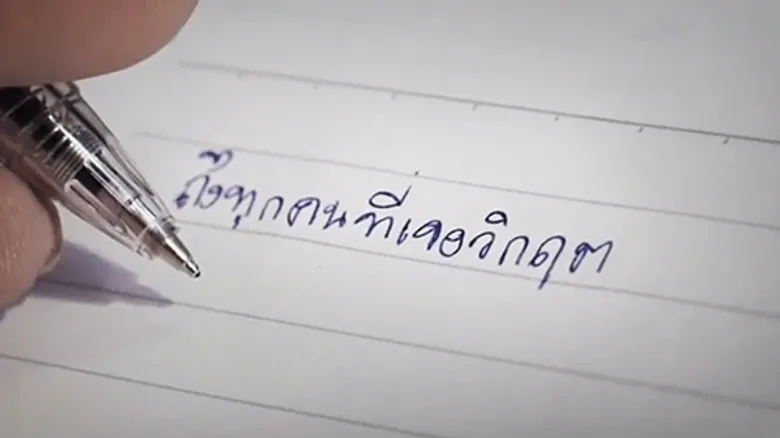 ถึงทุกคนที่เจอวิกฤต